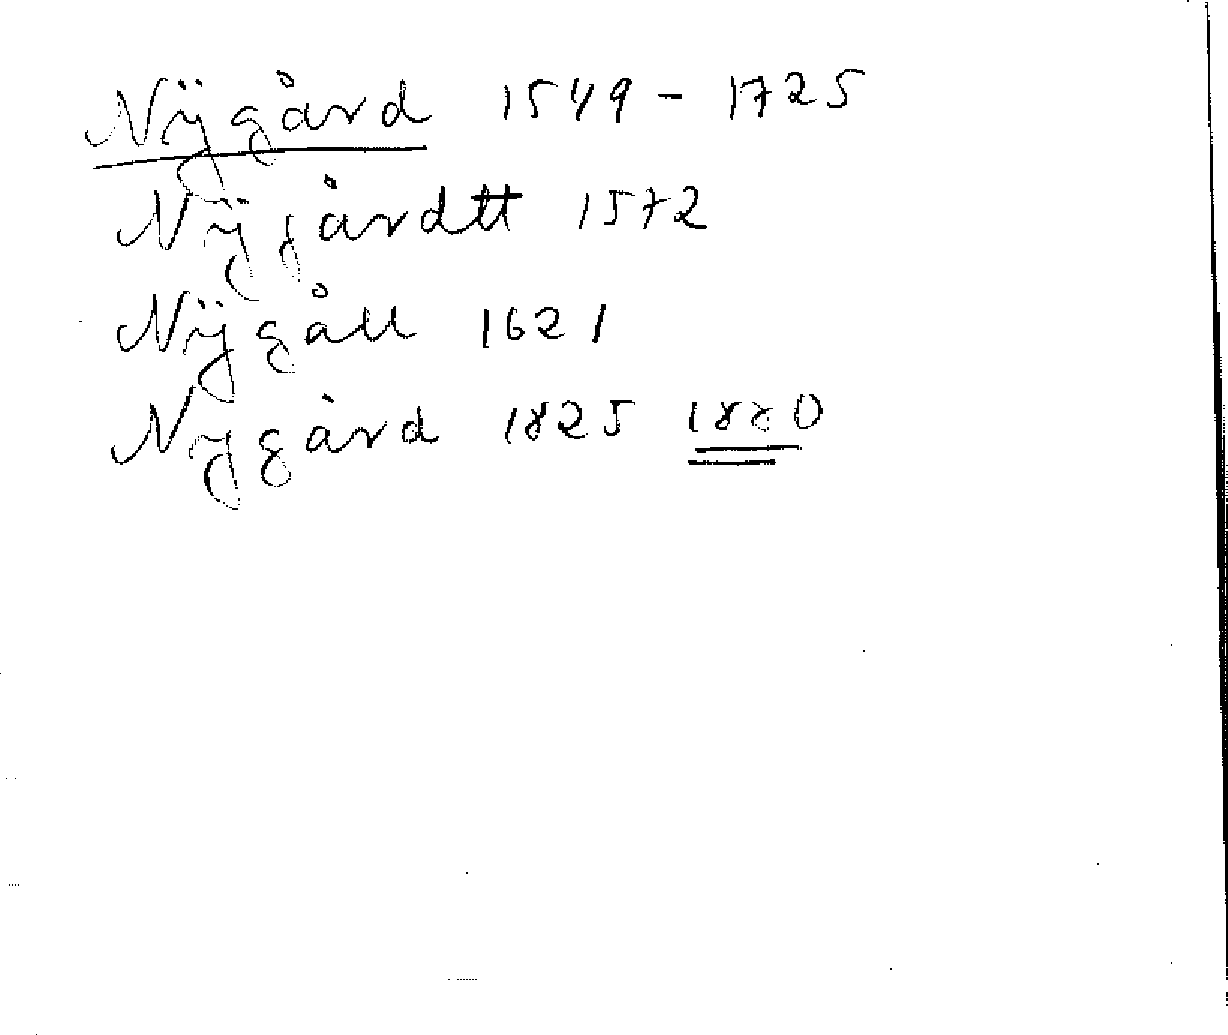 Nÿgård 1549 - 1725
Nÿgårdtt 1572
Nÿgåll 1621
Nygård 1825 1880